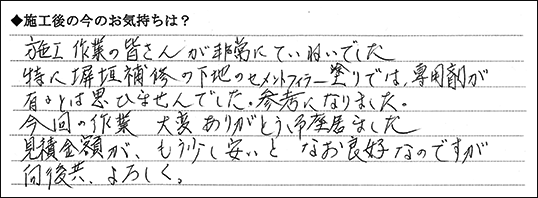 ◆施工後の今のお気持ちは?
施工作業の皆さんが非常にていねいでした
特に塀垣補修の下地のセメントフィラー塗りでは、専用剤が
有るとは思ひませんでした。参考になりました。
今回の作業 大変ありがとう居ました
見積金額が、もう少し安いと なお良好なのですが
向後共、よろしく。